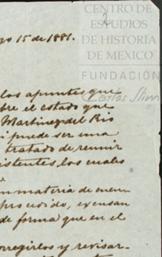 CENTRO DE
ESTUDIOS
DE HISTORIA
DE MEXICO
FUNDACIÓN
Carlos Slim
15 de 1881.
los apuntes que
el estado que
Martinez del Rio
puede ser una
tratado de reunir
los cuales
en materia de
de forma que en el
y revisar-